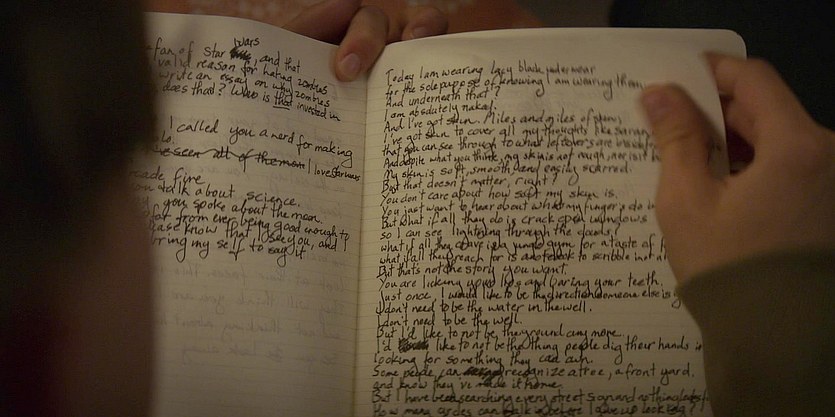 fan of Star Wars, and that
valid reason for hating zombies
write an essay on why zombies
does that? Who is that invested in
I called you a nerd for making
I love Star Wars
arcade fire
talk about science.
you spoke about the moon.
far from ever being good enough to
know that I see you, and I
bring my self to say it
Today I am wearing lacy black underwear
for the sole purpose of knowing I am wearing them.
And underneath that?
I am absolutely naked.
And I've got skin. Miles and miles of skin;
I've got skin to cover all my thoughts like saran
that you can see through to what leftovers are inside
And despite what you think, my skin is not rough, nor is it
My skin is soft, smooth, and easily scarred.
But that doesn't matter, right?
You don't care about how soft my skin is.
You just want to hear about what my fingers do in
But what if all they do is crack open windows
so I can see lightning through the clouds?
what if all they crave is a jungle gym for a taste of
what if all they reach for is a notebook to scribble in
But that's not the story you want.
You are licking your lips and baring your teeth.
Just once, I would like to be the direction someone else is
I don't need to be the water in the well.
I don't need to be the well.
But I'd like to not be the ground any more.
I'd like to not be the thing people dig their hands in
looking for something they can own.
Some people can recognize a tree, a front yard,
and know they've made it home.
But I have been searching every street sign and
How many circles can I walk in before I give up looking?